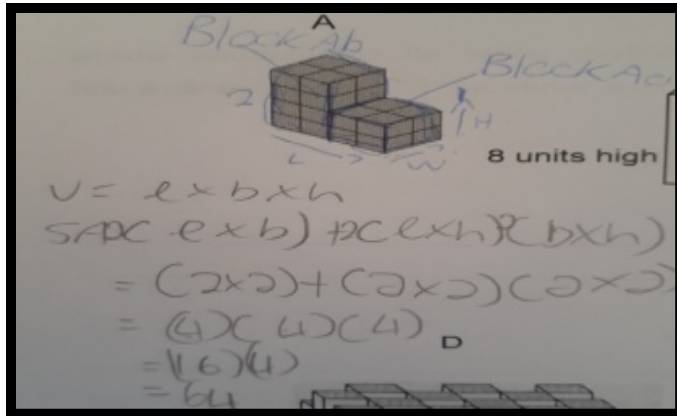 A
Block Ab
Block Aa
2
H
L
W
8 units high
V = l x b x h
SA2( l x b) + 2( l x h)2( b x h)
= (2x2)+(2x2)(2x2)
= (4)(4)(4)
D
=(16)(4)
= 64